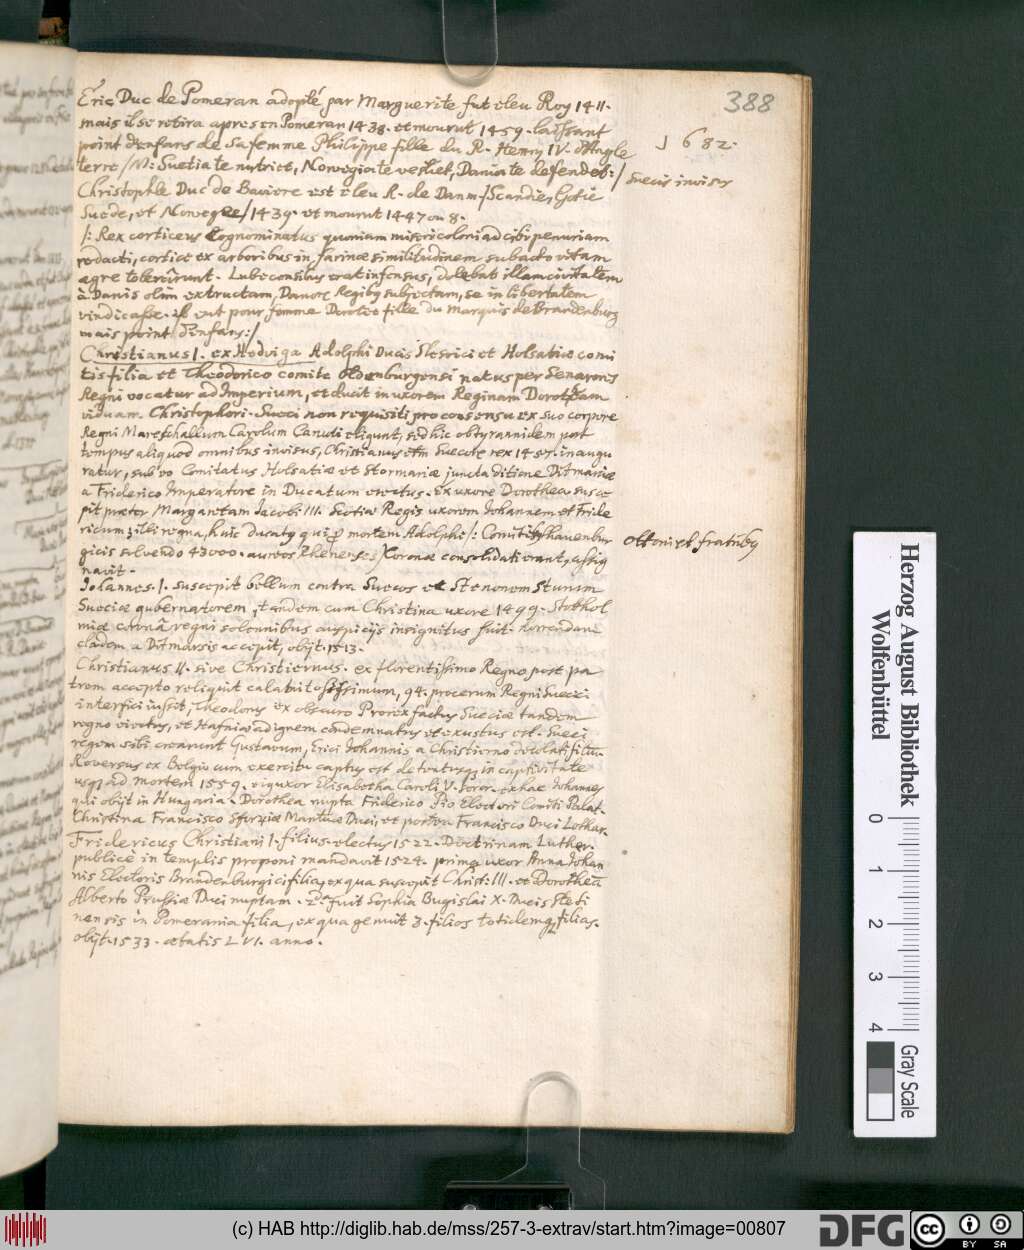 388
1682.
Eric Duc de Pomeran adopté, par Marguerite fut eleu Roy 1411.
mais il se retira apres en Pomeran 1438. et mourut 1459. laissant
point d'enfans de sa femme Philippe fille du R. Henry IV. d'Angle
terre /M: Suetia te nutriet, Norvegia te vestiet, Dania te defendet:/ Suecis invisus
Christophle Duc de Baviere est eleu R. de Danm:/Scandie, Gotie
Suede, et Norwegee/1439. et mourut 1447 ou 8.
/: Rex corticeus cognominatus quoniam miseri coloni ad cibi penuriam
redacti, cortice ex arboribus in farinae similitudinem subacto vitam
aegre tolerârunt. Lubecensibus erat infensus, dolebat illam civitatem
à Danis olim extructam, Danorum Regibus subjectam, se in libertatem
vindicasse. il eut pour femme Dorotee fille du Marquis de Brandenburg
mais point d'enfans:/
Christianus I. ex Hedviga Adolphi Ducis Slesvici et Holsatiae comi
tis filia et Theodorico comite Oldenburgensi natus per Senatores
Regni vocatur ad Imperium, et ducit in uxorem Reginam Dorotheam
viduam Christophori. Sueci non requisiti pro consensu ex suo corpore
Regni Mareschallum Carolum Canuti eligunt, sed hic ob tyrannidem post
tempus aliquod omnibus invisus, Christianus etiam Suecorum rex 1457. inaugu
ratur, sub eo Comitatus Holsatiae et Stormariae juncta ditione Ditmariae
a Friderico Imperatore in Ducatum erectus. Ex uxore Dorothea susce
pit praeter Margaretam Jacobi III. Scotiae Regis uxorem Johannem et Fride
ricum; illi regna, huic ducatus qui post mortem Adolphi /: Comitibus Schauenbur
gicis solvendo 43000. aureos Rhenenses/ Coronae consolidati erant, assig Ottoni et fratribus
navit.
Johannes. I. suscepit bellum contra Suecos et Stenonem Sturim
Sueciae gubernatorem, tandem cum Christina uxore 1499. Stokhol
miae coronâ regni solennibus auspicijs insignitus fuit. horrendam
cladem a Ditmarsis accepit, obijt. 1513.
Christianus II. sive Christiernus. ex florentissimo Regno post pa
trem accepto reliquit calamitosissimum, 94. procerum Regni Sueci
interfici iussit, Theodorus ex obscuro Prorex factus Sueciae tandem
regno eiectus, et Hafniae ad ignem condemnatus et exustus est. Sueci
regem sibi crearunt Gustavum, Erici Johannis a Christierno decollati filium
Reversus ex Belgio cum exercitu captus est detentusque in captivitate
usque ad mortem 1559. eius uxor Elisabetha Caroli V. soror. ex hac Johannes
qui obijt in Hungaria. Dorothea nupta Friderico Pio Electori Comiti Palat.
Christina Francisco Sforziae Mantuae Duci, et postea Francisco Duci Lothar.
Fridericus Christiani I. filius. electus 1522. Doctrinam Luther.
publicè in templis proponi mandavit 1524. prima uxor Anna Johan
nis Electoris Brandenburgici filia, ex qua suscepit Christ: III. et Dorotheam
Alberto Prussiae Duci nuptam. 2da fuit Sophia Bugislai X. Ducis Steti
nensis in Pomerania filia, ex qua genuit 3. filios totidemque filias.
obijt. 1533. aetatis LVI. anno.
Herzog August Bibliothek
Wolfenbüttel
0 1 2 3 4
Gray Scale
(c) HAB http://diglib.hab.de/mss/257-3-extrav/start.htm?image=00807
DFG
cc BY SA